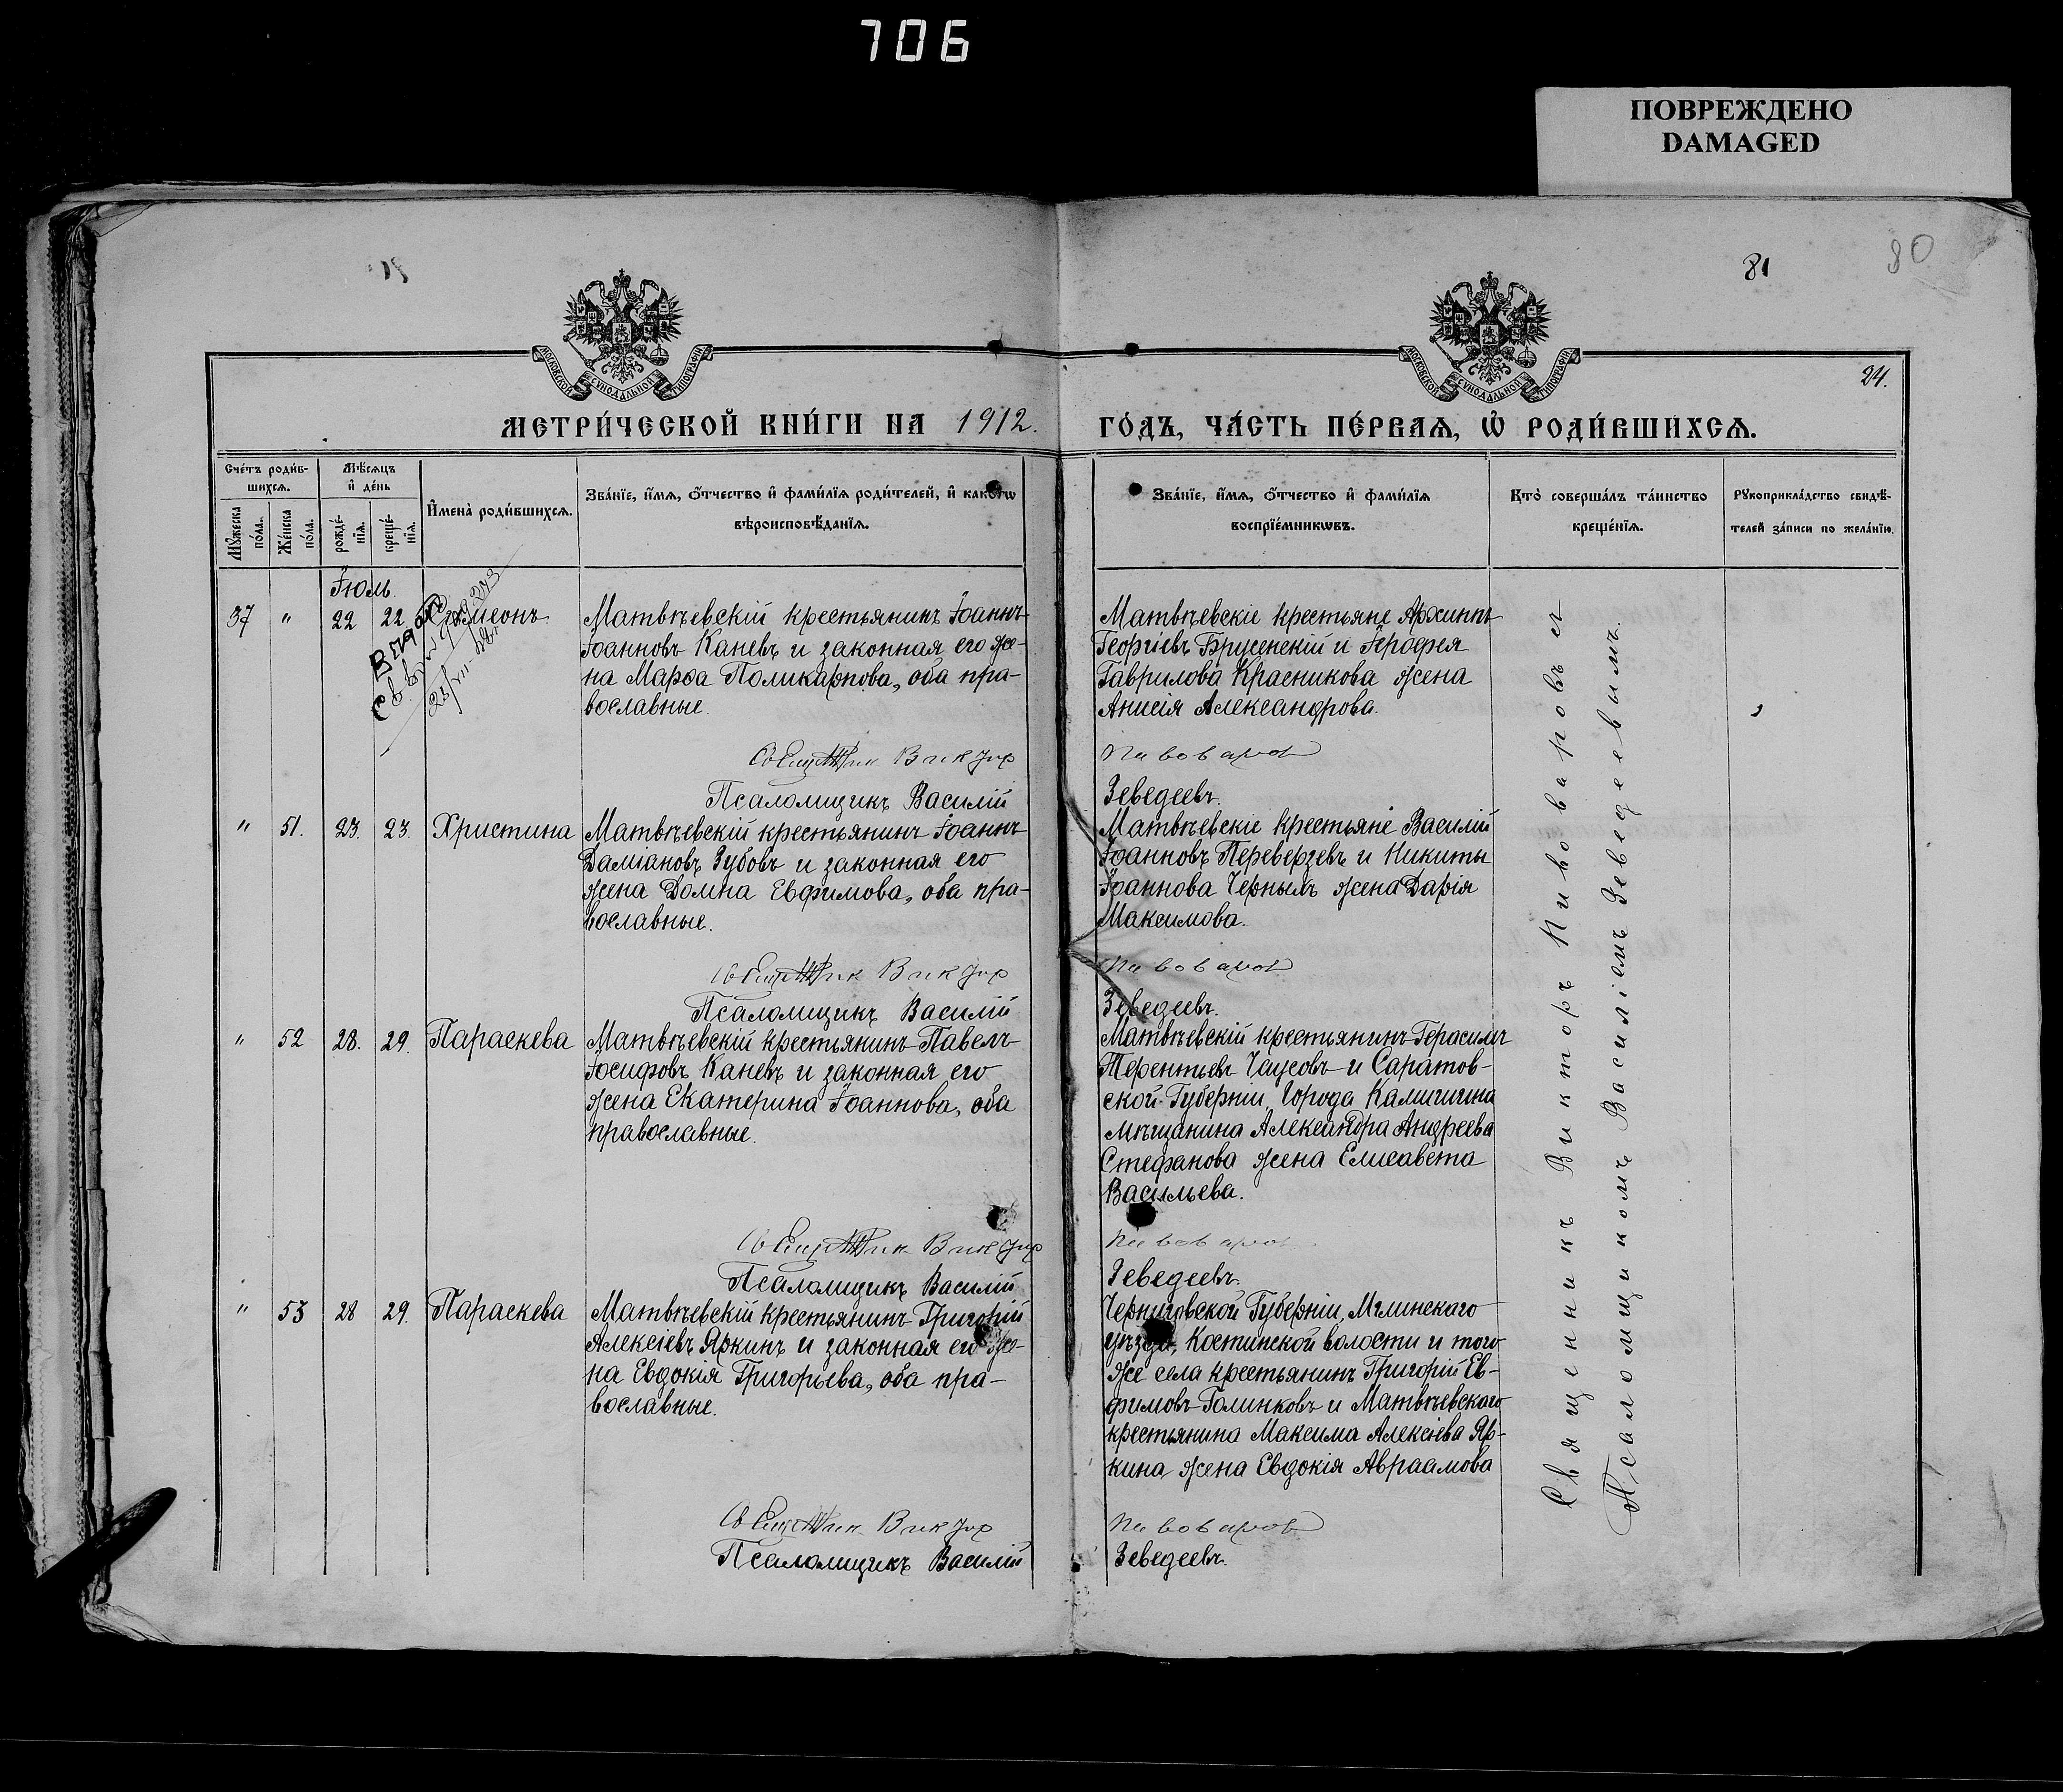 706
ПОВРЕЖДЕНО
DAMAGED
81
80
24.
МОСКОВСКОЙ СѴНОДАЛЬНОЙ ТИПОГРАФІИ
МОСКОВСКОЙ СѴНОДАЛЬНОЙ ТИПОГРАФІИ
МЕТРИ́ЧЕСКОЙ КНИ́ГИ НА 1912. ГО́ДЪ, ЧА́СТЬ ПЕ́РВАѦ, Ѡ҆ РОДИ́ВШИХСѦ.
Сче́тъ роди́в-
шихсѧ.
Мѣ́сѧцъ
и҆ де́нь
Мꙋ́жеска
по́ла.
Же́нска
по́ла.
рожде́-
нїѧ.
креще́-
нїѧ.
И҆мена̀ роди́вшихсѧ.
Зва́нїе, и҆́мѧ, ѻ҆́тчество и҆ фами́лїѧ роди́телей, и҆ како́гѡ
вѣроисповѣ́данїѧ.
Зва́нїе, и҆́мѧ, ѻ҆́тчество и҆ фами́лїѧ
воспрїе́мникѡвъ.
Кто̀ соверша́лъ та́инство
креще́нїѧ.
Рꙋкоприкла́дство свидѣ́-
телей за́писи по жела́нїю.
Іюль.
37 " 22 22 Симеонъ
Матвѣевскій крестьянинъ Іоаннъ
Іоанновъ Каневъ и законная его же-
на Марѳа Поликарпова, оба пра-
вославные.
Священник Виктор
Псаломщикъ Василій
Матвѣевскіе крестьяне Архиппъ
Георгіевъ Брусенскій и Іерофея
Гаврилова Красникова жена
Анисія Александрова.
Пивоваров
Зеведеевъ.
" 51. 23. 23. Христина
Матвѣевскій крестьянинъ Іоаннъ
Даміановъ Зубовъ и законная его
жена Домна Евфимова, оба пра-
вославные.
Священник Виктор
Псаломщикъ Василій
Матвѣевскіе крестьяне Василій
Іоанновъ Переверзевъ и Никиты
Іоаннова Черныхъ жена Дарія
Максимова.
Пивоваров
Зеведеевъ.
" 52 28. 29. Параскева
Матвѣевскій крестьянинъ Павелъ
Іосифовъ Каневъ и законная его
жена Екатерина Іоаннова, оба
православные.
Священник Виктор
Псаломщикъ Василій
Матвѣевскій крестьянинъ Герасимъ
Терентьевъ Чаусовъ и Саратов-
ской Губерніи, города Камышина
мѣщанина Александра Андреева
Стефанова жена Елисавета
Васильева.
Пивоваров
Зеведеевъ.
" 53 28 29. Параскева
Матвѣевскій крестьянинъ Григорій
Алексіевъ Яркинъ и законная его же-
на Евдокія Григорьева, оба пра-
вославные.
Священник Виктор
Псаломщикъ Василій
Черниговской Губерніи, Мглинскаго
уѣзда, Костинской волости и того
же села крестьянинъ Григорій Ев-
фимовъ Голинковъ и Матвѣевскаго
крестьянина Максима Алексіева Яр-
кина жена Евдокія Авраамова
Пивоваров
Зеведеевъ.
Священникъ Викторъ Пивоваровъ съ
Псаломщикомъ Василіемъ Зеведеевымъ.